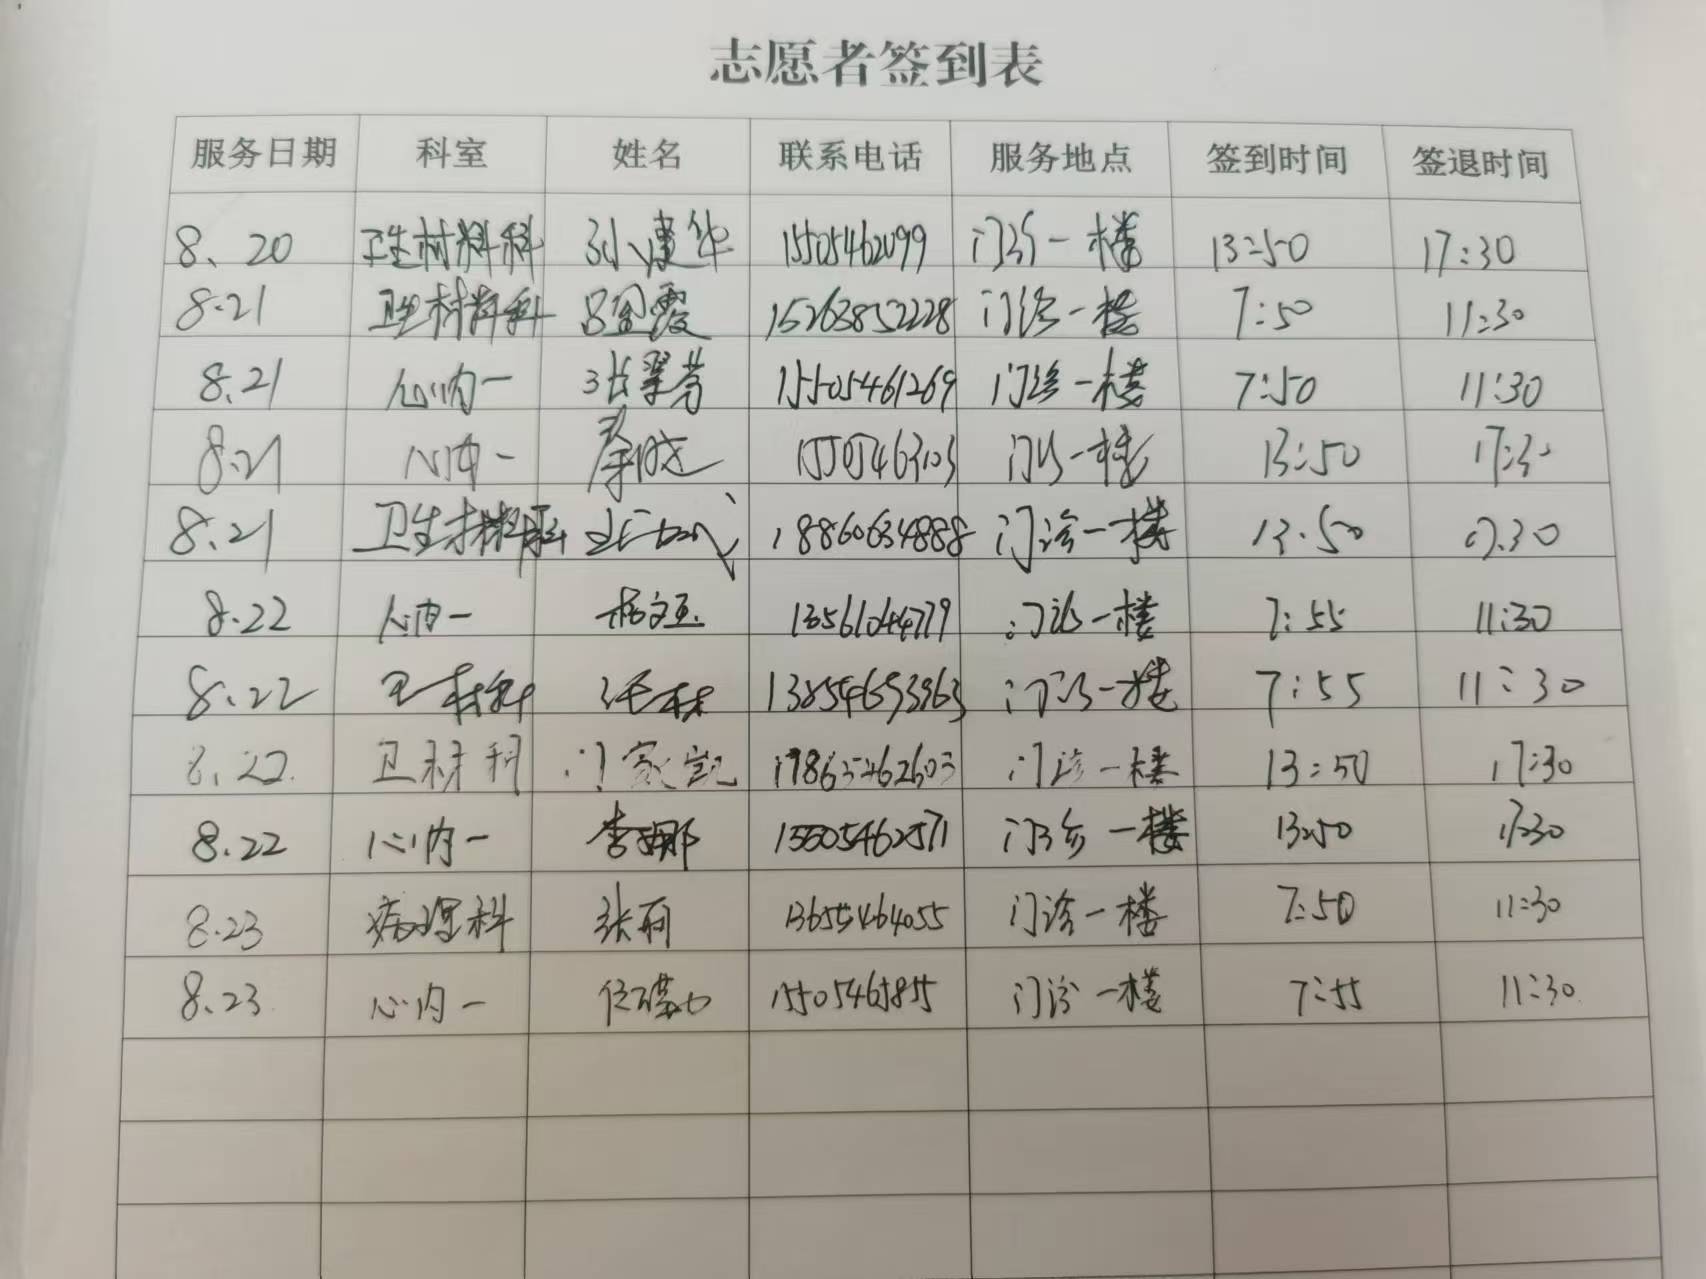 志愿者签到表
服务日期 科室 姓名 联系电话 服务地点 签到时间 签退时间
8、20 卫生材料科 孙建华 15505462099 门诊一楼 13:50 17:30
8.21 卫生材料科 吕金霞 15263852228 门诊一楼 7:50 11:30
8.21 心内一 张翠芳 15505461269 门诊一楼 7:50 11:30
8.21 心内一 15505463103 门诊一楼 13:50 17:30
8.21 卫生材料科 18860634888 门诊一楼 13.50 17.30
8.22 心内一 杨文玉 门诊一楼 7:55 11:30
8.22 卫材科 13854693963 门诊一楼 7:55 11:30
8.22. 卫材科 门家凯 17865462603 门诊一楼 13:50 17:30
8.22 心内一 李娜 15505462571 门诊一楼 13:50 17:30
8.23 病理科 张丽 13655464055 门诊一楼 7:50 11:30
8.23. 心内一 15505465855 门诊一楼 7:55 11:30.